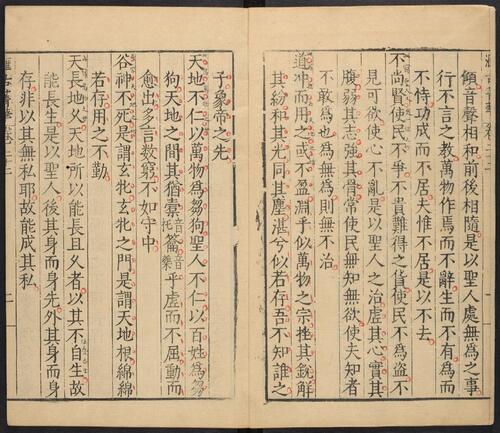 傾音聲相和前後相隨是以聖人處無爲之事
行不言之教萬物作焉而不辭生而不有爲而
不恃功成而不居夫惟不居是以不去
不尚賢使民不爭不貴難得之貨使民不爲盜不
見可欲使心不亂是以聖人之治虛其心實其
腹弱其志強其骨常使民無知無欲使夫知者
不敢爲也爲無爲則無不治
道冲而用之或不盈淵乎似萬物之宗挫其銳解
其紛和其光同其塵湛兮似若存吾不知誰之
子象帝之先
天地不仁以萬物爲芻狗聖人不仁以百姓爲芻
狗天地之間其猶橐音托籥音樂乎虛而不屈動而
愈出多言數窮不如守中
谷神不死是謂玄牝玄牝之門是謂天地根綿綿
若存用之不勤
天長地久天地所以能長且久者以其不自生故
能長生是以聖人後其身而身先外其身而身
存非以其無私耶故能成其私